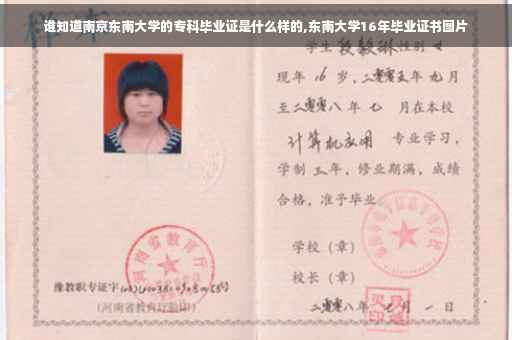 谁知道南京东南大学的专科毕业证是什么样的,东南大学16年毕业证书图片
学生 段毅琳 性别 女
现年 16 岁，二零零五年 九月
至二零零八年 七 月在本校
计算机应用 专业学习，
学制 三 年，修业期满，成绩
合格，准予毕业。
学校（章）
校长（章）
二零零八年 七 月 一 日
河南省教育厅
豫教职专证字
（河南省教育厅监印）